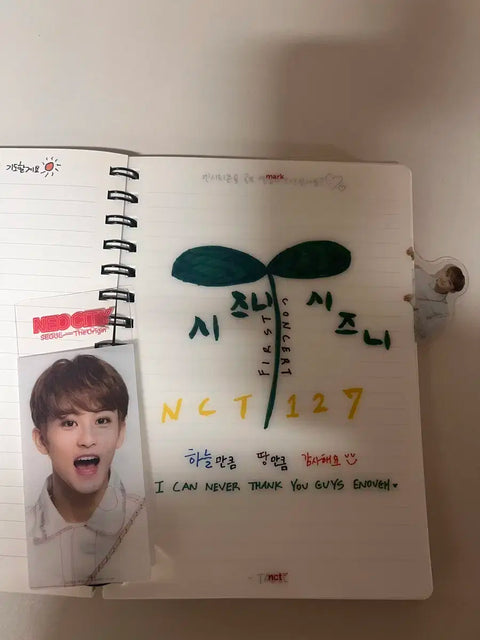 기도할게요
mark
NEO CITY
SEOUL—The Origin
시즈니 시즈니
FIRST CONCERT
NCT 127
하늘만큼 땅만큼 감사해요
I CAN NEVER THANK YOU GUYS ENOUGH
nct